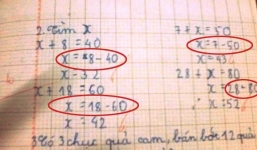 2. Tìm x
x + 8 = 40
x = 8 - 40
x = 32
x + 18 = 60
x = 18 - 60
x = 42
7 + x = 50
x = 7 - 50
x = 43
28 + x = 80
x = 28 - 80
x = 52
3. Có 3 chục quả cam, bán bớt 12 quả